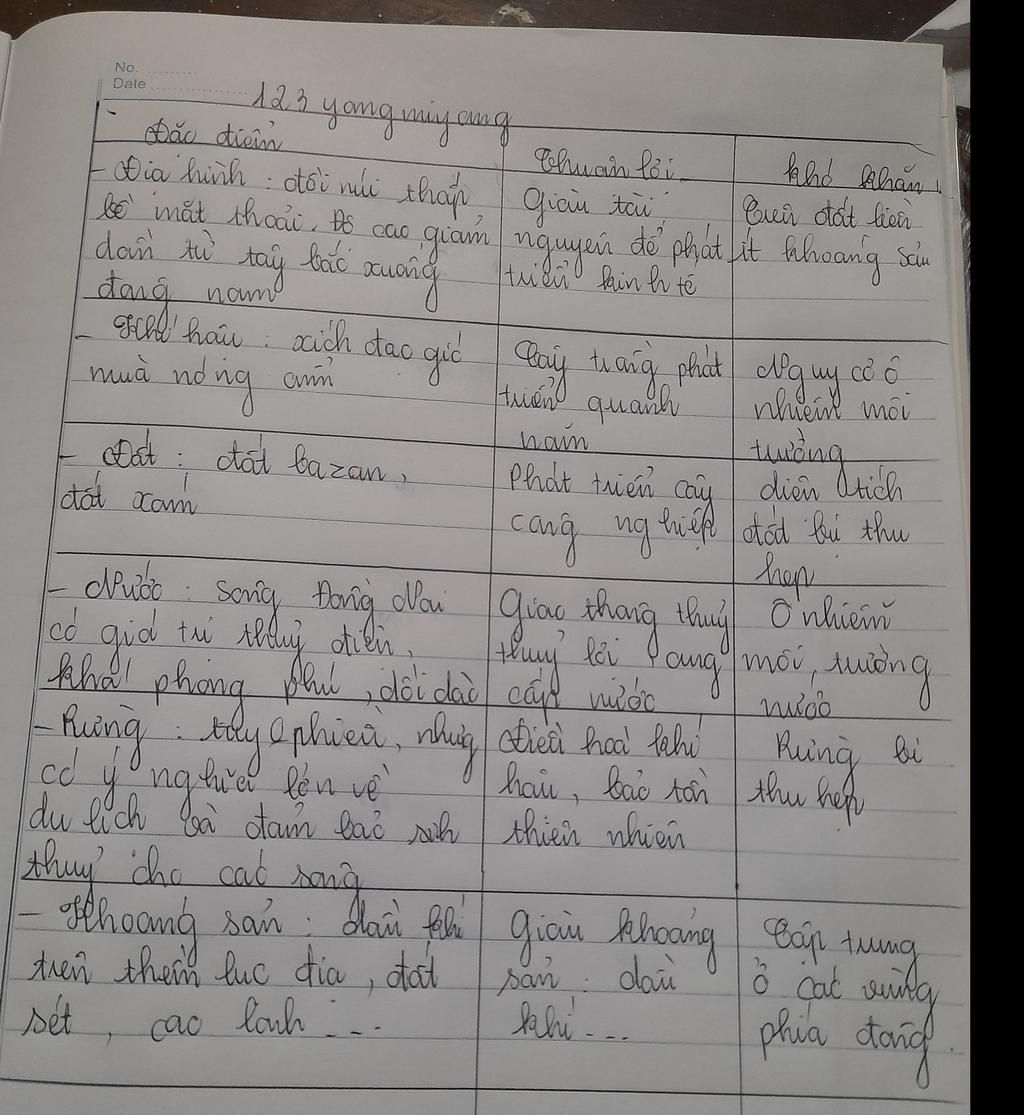 No. ..........
Date ....................
123 yangmiyang
Đặc điểm
Thuận lợi
khó khăn
- Địa hình : đồi núi thấp
bề mặt thoải. Độ cao giảm
dần từ tây bắc xuống
đông nam
Giàu tài
nguyên để phát
triển kinh tế
Trên đất liền
ít khoáng sản
- Khí hậu : xích đạo gió
mùa nóng ẩm
Cây trồng phát
triển quanh
năm
Nguy cơ ô
nhiễm môi
trường
- Đất : đất bazan,
đất xám
Phát triển cây
công nghiệp
diện tích
đất bị thu
hẹp
- Nước : sông Đồng Nai
có giá trị thuỷ điện,
khá phong phú, dồi dào
Giao thông thuỷ
thuỷ lợi cung
cấp nước
Ô nhiễm
môi trường
nước
- Rừng : tuy 0 nhiều, nhưng
có ý nghĩa lớn về
du lịch và đảm bảo sinh
thuỷ cho các sông
Điều hoà khí
hậu, bảo tồn
thiên nhiên
Rừng bị
thu hẹp
- Khoáng sản : dầu khí
trên thềm lục địa, đất
sét, cao lanh ...
Giàu khoáng
sản : dầu
khí ...
Tập trung
ở các vùng
phía đông.